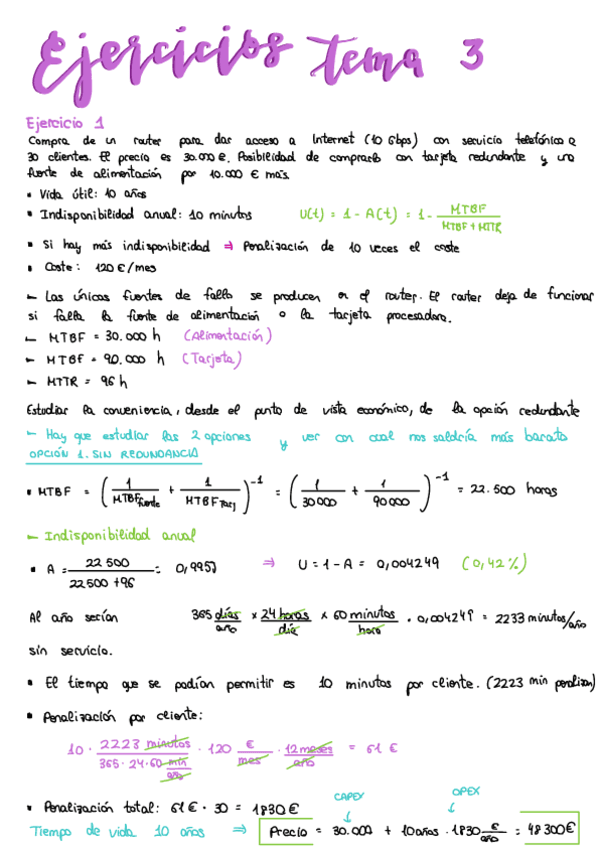 Ejercicios tema 3
Ejercicio 1
Compra de un router para dar acceso a Internet (10 Gbps) con servicio telefónico a
30 clientes. El precio es 30.000 €. Posibilidad de comprarlo con tarjeta redundante y una
fuente de alimentación por 10.000 € más.
• Vida útil: 10 años
• Indisponibilidad anual: 10 minutos U(t) = 1 - A(t) = 1 - MTBF / MTBF + MTTR
• Si hay más indisponibilidad ⇒ Penalización de 10 veces el coste
• Coste: 120 €/mes
– Las únicas fuentes de fallo se producen en el router. El router deja de funcionar
si falla la fuente de alimentación o la tarjeta procesadora.
– MTBF = 30.000 h (Alimentación)
– MTBF = 90.000 h (Tarjeta)
– MTTR = 96 h
Estudiar la conveniencia, desde el punto de vista económico, de la opción redundante
– Hay que estudiar las 2 opciones y ver con cual nos saldría más barato
OPCIÓN 1. SIN REDUNDANCIA
• MTBF = (1 / MTBF fuente + 1 / MTBF Tarj)^-1 = (1 / 30000 + 1 / 90000)^-1 = 22.500 horas
– Indisponibilidad anual
• A = 22500 / 22500 + 96 = 0,9957 ⇒ U = 1 - A = 0,004249 (0,42%)
Al año serían 365 días/año × 24 horas/día × 60 minutos/hora · 0,004249 = 2233 minutos/año
sin servicio.
• El tiempo que se podían permitir es 10 minutos por cliente. (2223 min penalizan)
• Penalización por cliente:
10 · 2223 minutos / 365 · 24 · 60 min/año · 120 €/mes · 12 meses/año = 61 €
• Penalización total: 61 € · 30 = 1830 € CAPEX OPEX
Tiempo de vida 10 años ⇒ Precio = 30.000 + 10 años · 1830 €/año = 48300 €